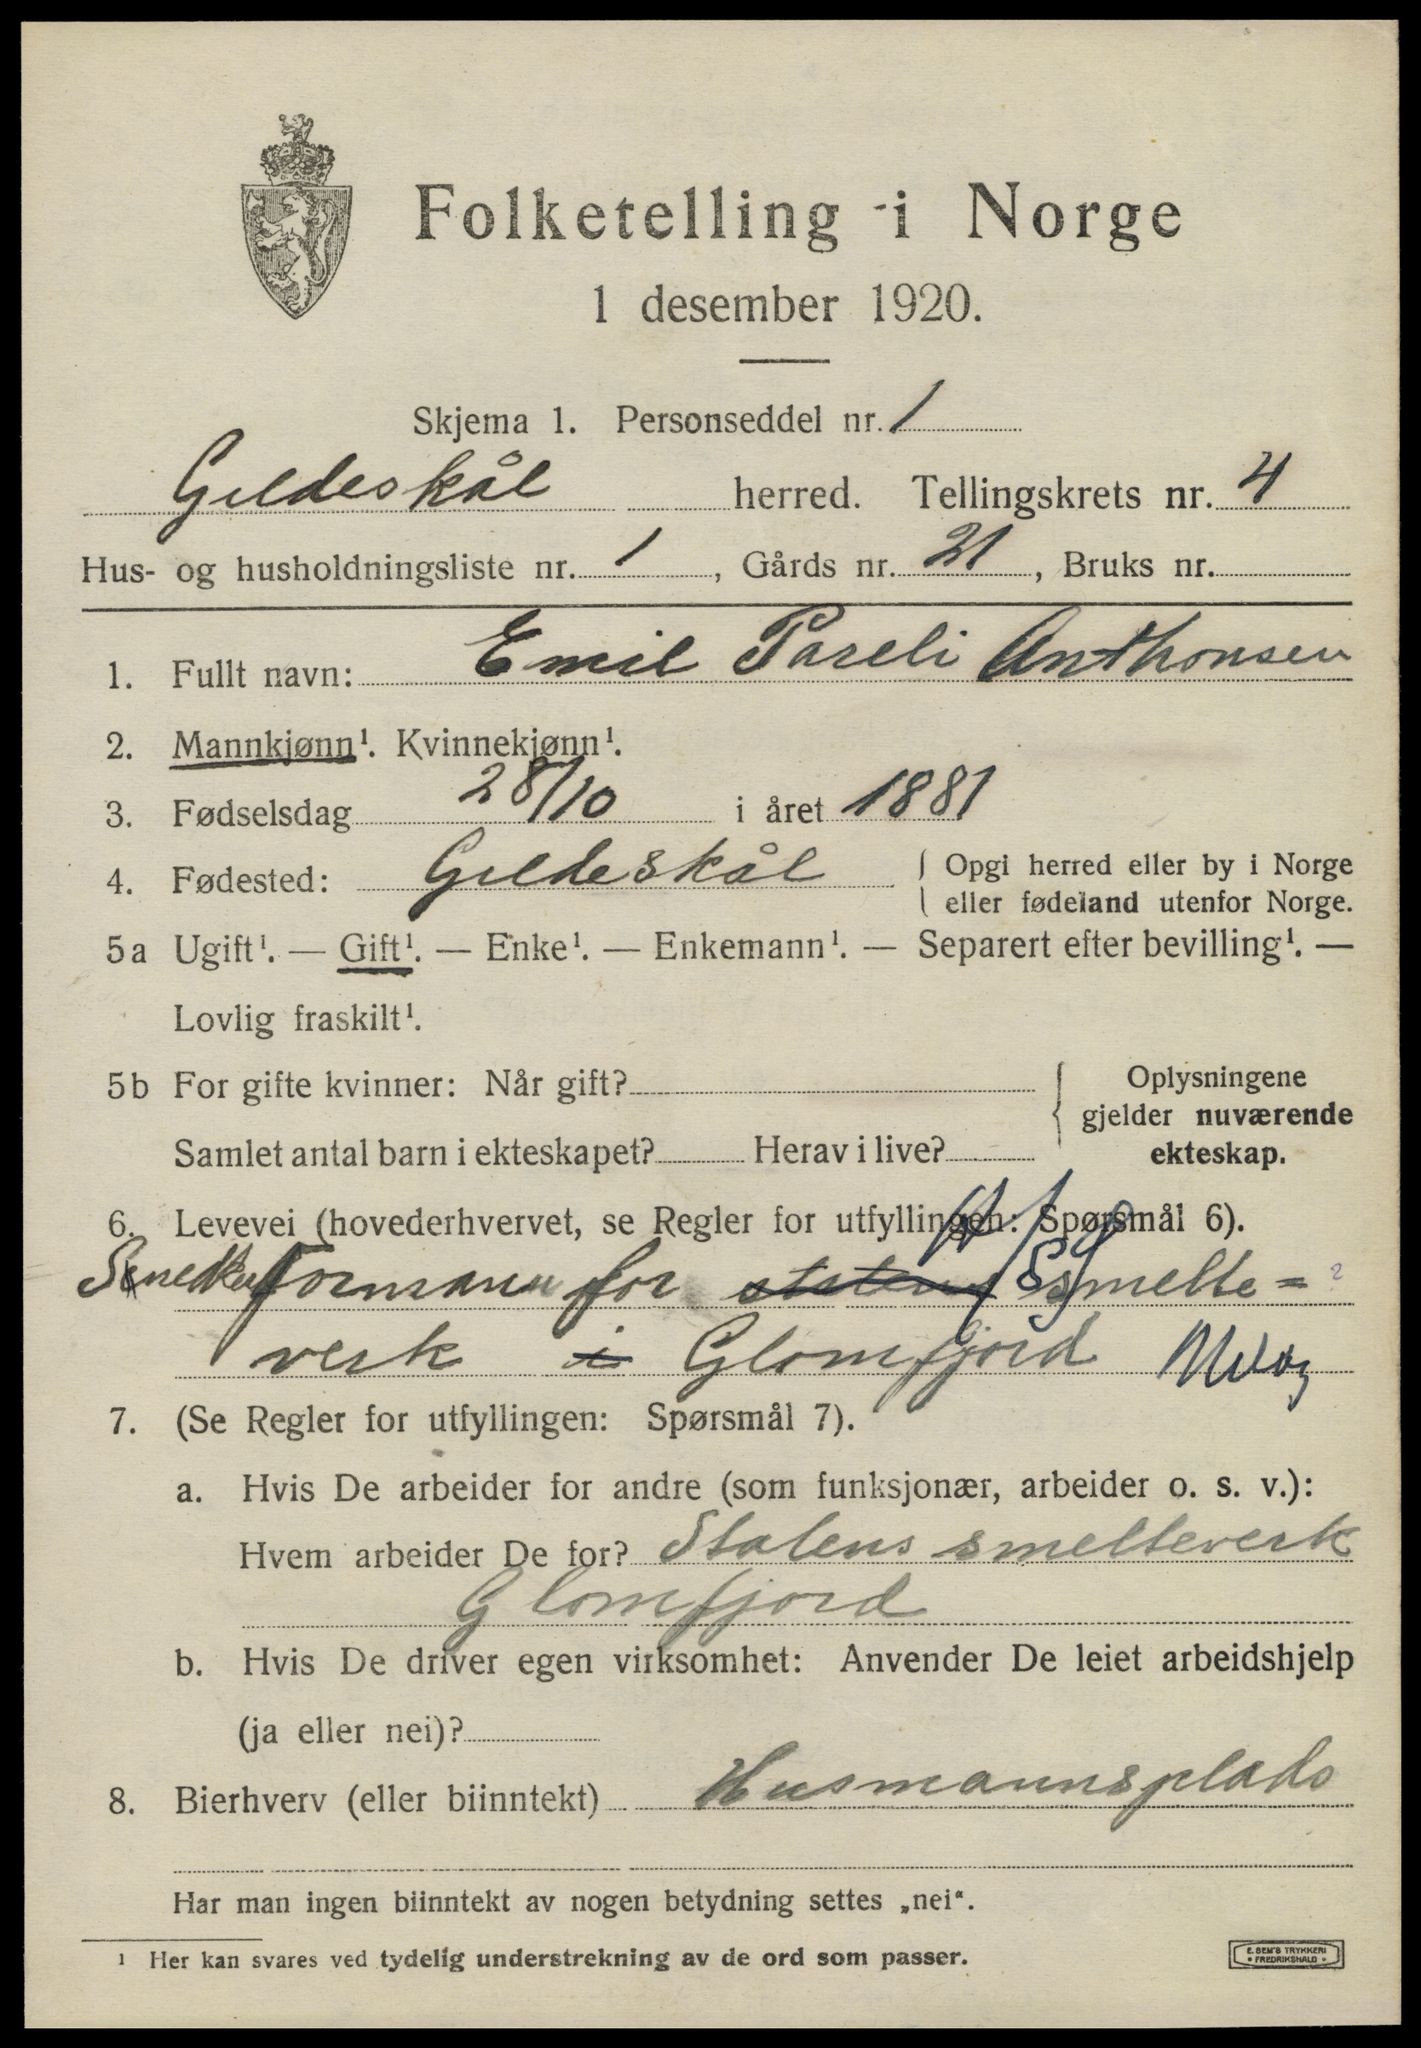 Folketelling i Norge
1 desember 1920.
Skjema 1. Personseddel nr. 1
Gildeskål herred. Tellingskrets nr. 4
Hus- og husholdningsliste nr. 1, Gårds nr. 21, Bruks nr.
1. Fullt navn: Emil Pareli Anthonsen
2. Mannkjønn¹. Kvinnekjønn¹.
3. Fødselsdag 28/10 i året 1881
4. Fødested: Gildeskål { Opgi herred eller by i Norge
eller fødeland utenfor Norge.
5a Ugift¹. — Gift¹. — Enke¹. — Enkemann¹. — Separert efter bevilling¹. —
Lovlig fraskilt¹.
5b For gifte kvinner: Når gift? { Oplysningene
gjelder nuværende
Samlet antal barn i ekteskapet? Herav i live? ekteskap.
6. Levevei (hovederhvervet, se Regler for utfyllingen: Spørsmål 6).
Formann for statens smelte=
verk i Glomfjord
7. (Se Regler for utfyllingen: Spørsmål 7).
a. Hvis De arbeider for andre (som funksjonær, arbeider o. s. v.):
Hvem arbeider De for? Statens smelteverk
Glomfjord
b. Hvis De driver egen virksomhet: Anvender De leiet arbeidshjelp
(ja eller nei)?
8. Bierhverv (eller biinntekt) Husmannsplads
Har man ingen biinntekt av nogen betydning settes „nei“.
¹ Her kan svares ved tydelig understrekning av de ord som passer.
E. SEM'S TRYKKERI
• FREDRIKSHALD •